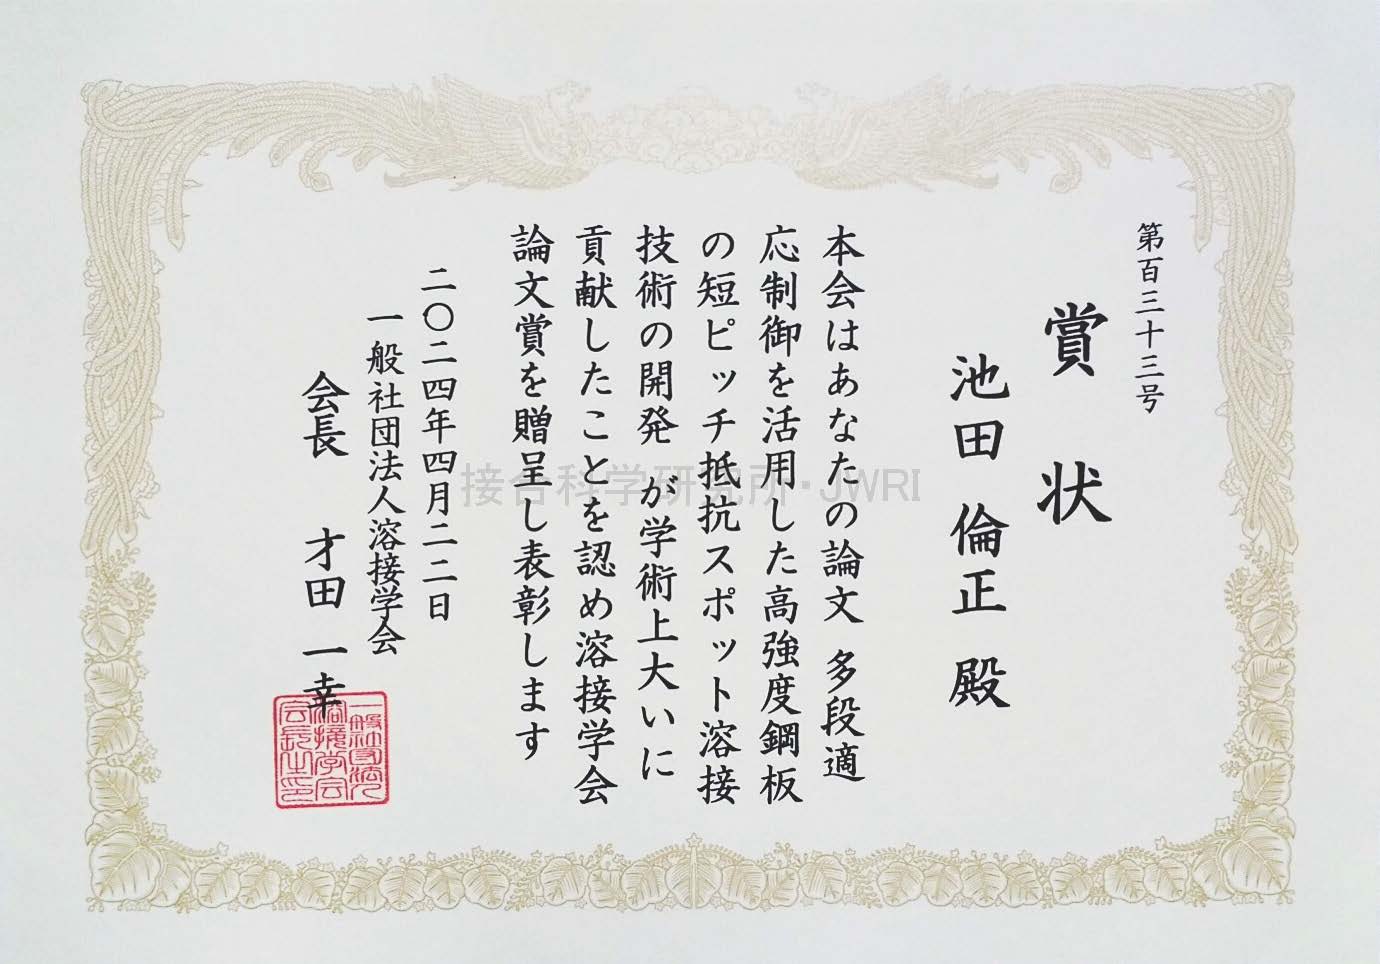 第百三十三号
賞状
池田 倫正 殿
本会はあなたの論文 多段適
応制御を活用した高強度鋼板
の短ピッチ抵抗スポット溶接
技術の開発 が学術上大いに
貢献したことを認め溶接学会
論文賞を贈呈し表彰します
二〇二四年四月二二日
一般社団法人溶接学会
会長 才田 一幸
一般社団法人
溶接学会
会長之印
接合科学研究所・JWRI